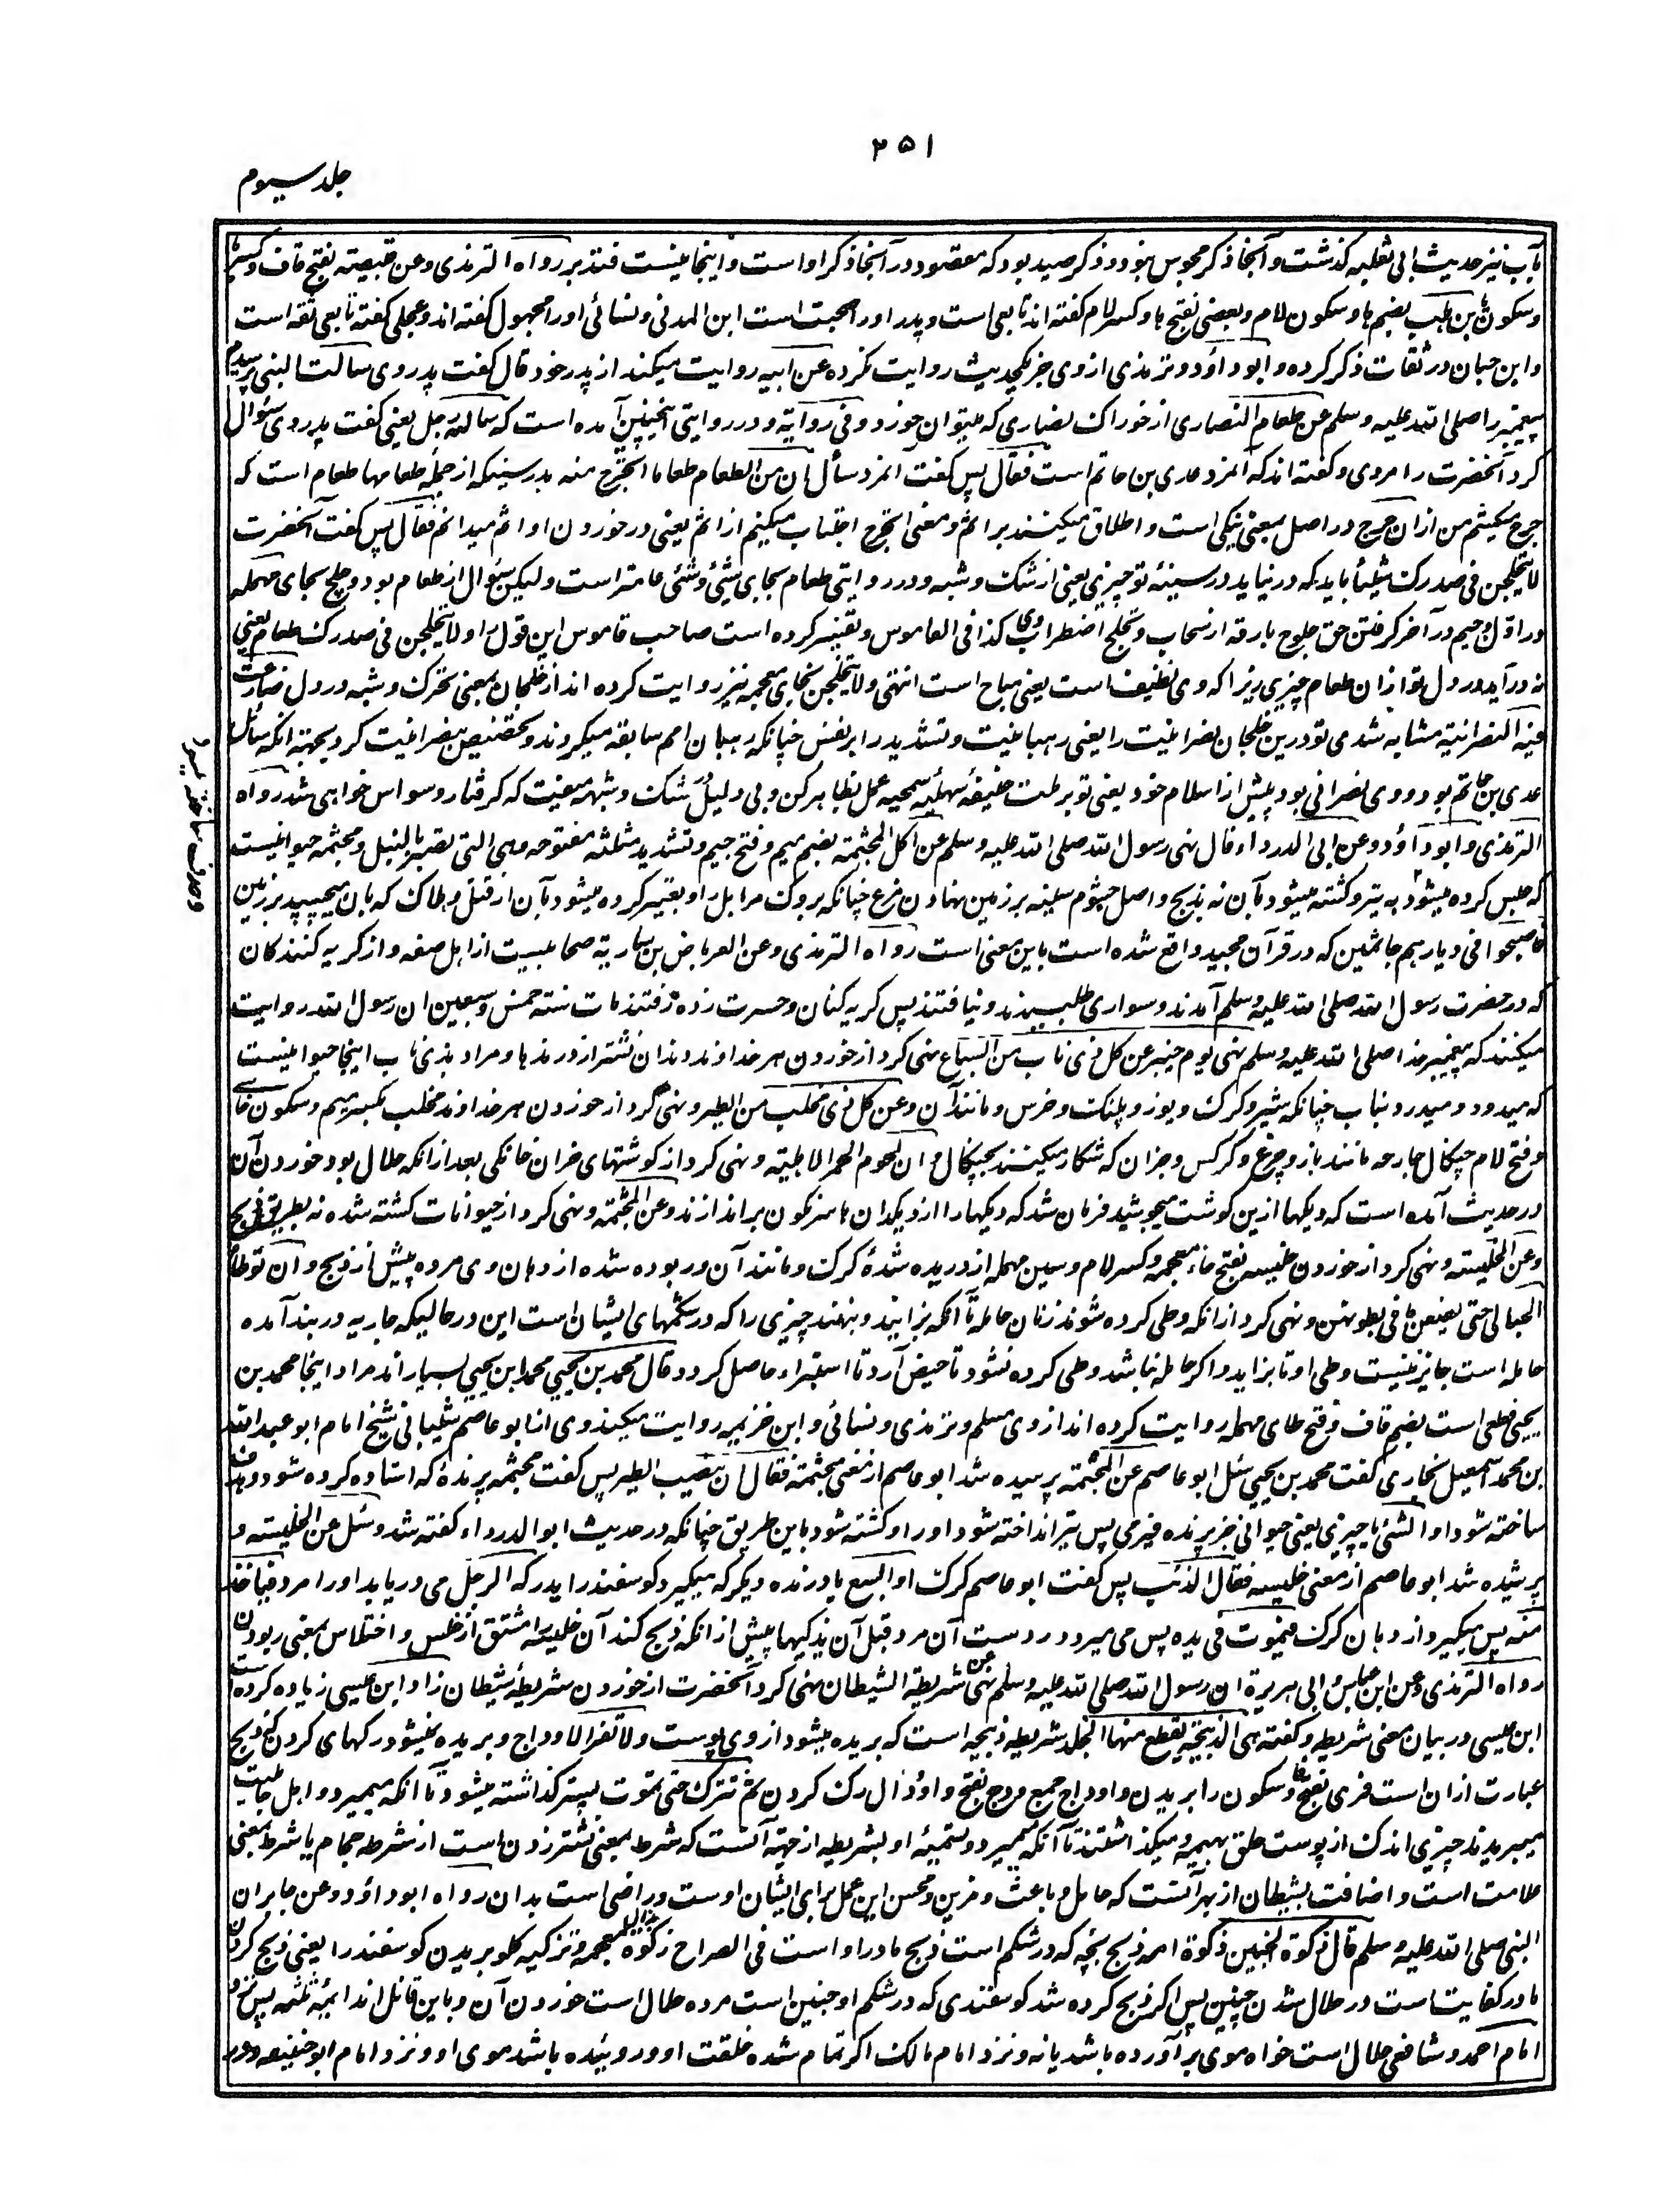 ۲۵۱
جلد سیوم
باب نیز حدیث ابی ثعلبه گذشت و آنجا ذکر مجوس نبود و ذکر صید بود که مقصود در آنجا ذکر او است و اینجا نیست فتدبر رواه الترمذی و عن قبیصة بفتح قاف و کسر با
و سکون یا بن هلب بضم ها و سکون لام و بعضی بفتح ها و کسر لام گفته اند تابعی است و پدر او را صحبت است ابن المدنی و نسائی او را مجهول گفته اند و عجلی گفته تابعی ثقه است
و ابن حبان در ثقات ذکر کرده و ابو داؤد و ترمذی از وی جز یکحدیث روایت نکرده عن ابیه روایت میکند از پدر خود قال گفت پدر وی سالت النبی پرسیدم
پیغمبر را صلی الله علیه وسلم عن طعام النصاری از خوراک نصاری که میتوان خورد و فی روایة و در روایتی اینچنین آمده است که ساله رجل یعنی گفت پدر وی سئوال
کرد آنحضرت را مردی و گفته اند که آنمرد عدی بن حاتم است فقال پس گفت آنمرد سائل ان من الطعام طعاما اتحرج منه بدرستیکه از جمله طعامها طعام است که
حرج میکشم من ازان حرج در اصل بمعنی تنگی است و اطلاق میکنند بر اثم و معنی اتحرج اجتناب میکنم از اثم یعنی در خوردن او اثم میدانم فقال پس گفت آنحضرت
لا یتحلجن فی صدرک شیئا باید که در نیاید در سینهٔ تو چیزی یعنی از شک و شبه و در روایتی طعام بجای شیئ و شئی عامتر است ولیکن سئوال از طعام بود و حلج بحای مهمله
در اول و جیم در آخر گرفتن حق حلوج بارقه از سحاب و تحلج اضطراب کذا فی القاموس و تفسیر کرده است صاحب قاموس این قول را و لا یتحلجن فی صدرک طعام یعنی
نه در آید در دل تو ازان طعام چیزی زیرا که وی نظیف است یعنی مباح است انتهی و لا یتخلجن بخای معجمه نیز روایت کرده اند از خلجان بمعنی تحرک و شبه در دل ضارعت
فیه النصرانیة مشابه شدی تو درین خلجان نصرانیت را یعنی رهبانیت و تشدید را بر نفس چنانکه رهبان امم سابقه میکردند و تخصیص بنصرانیت کرد بجهة آنکه سائل
عدی بن حاتم بود و وی نصرانی بود پیش از اسلام خود یعنی تو بر ملت حنیفهٔ سهلهٔ سمحیه عمل بظاهر کن و بی دلیل شک و شبهه معنیت که گرفتار وسواس خواهی شد رواه
الترمذی و ابو داؤد و عن ابی الدرداء قال نهی رسول الله صلی الله علیه وسلم عن اکل المجثمة بضم میم و فتح جیم و تشدید مثلثه مفتوحه وهی التی تصبر بالنبل و مجثمه حیوانیست
که حبس کرده میشود به تیر و کشته میشود بآن نه بذبح و اصل جثوم سینه بر زمین نهادن مرغ چنانکه بروک مر ابل را و تعبیر کرده میشود بآن از قتل و هلاک که بآن میچسپد بر زمین
فاصبحوا فی دیارهم جاثمین که در قرآن مجید واقع شده است باین معنی است رواه الترمذی و عن العرباض بن ساریة صحابیست از اهل صفه و از گریه کنندگان
که در حضرت رسول الله صلی الله علیه وسلم آمدند و سواری طلبیدند و نیافتند پس گریه کنان و حسرت زده رفتند مات سنة خمس و سبعین ان رسول الله روایت
میکنند که پیغمبر خدا صلی الله علیه وسلم نهی یوم خیبر عن کل ذی ناب من السباع نهی کرد از خوردن هر خداوند دندان نشتر از درندها و مراد بذی ناب اینجا حیوانیست
که میدود و میدرد بناب چنانکه شیر و گرگ و یوز و پلنگ و خرس و مانند آن و عن کل ذی مخلب من الطیر و نهی کرد از خوردن هر خداوند مخلب بکسر میم و سکون خای
و فتح لام چنگال جارحه مانند باز و چرغ و کرگس و جزان که شکار میکنند بچنگال و عن لحوم الحمر الاهلیة و نهی کرد از گوشتهای خران خانگی بعد ازانکه حلال بود خوردن آن تا
در حدیث آمده است که دیگها ازین گوشت میجوشید فرمان شد که دیگها را از دیگدان ها سرنگون براندازند و عن المجثمة و نهی کرد از حیوانات کشته شده نه بطریق ذبح
و عن الخلیسة و نهی کرد از خوردن خلیسه بفتح خاء معجمه و کسر لام و سین مهمله از دریده شدهٔ گرگ و مانند آن و ربوده شده از دهان وی مرده پیش از ذبح و ان توطأ
الحبالی حتی یضعن ما فی بطونهن و نهی کرد ازانکه وطی کرده شوند زنان حامله تا آنکه بزایند و بنهند چیزی را که در شکمهای ایشان است این در حالیکه جاریه در بند آمده
حامله است جایز نیست وطی او تا بزاید و اگر حامله نباشد وطی کرده نشود تا حیض آرد تا استبراء حاصل گردد قال محمد بن یحیی محمد ابن یحیی بسیار اند مراد اینجا محمد بن
یحیی قطعی است بضم قاف و فتح طای مهمله روایت کرده اند از وی مسلم و ترمذی و نسائی و ابن خزیمه روایت میکند وی از ابو عاصم شیبانی شیخ امام ابو عبد الله
بن محمد اسمعیل بخاری گفت محمد بن یحیی سئل ابو عاصم عن المجثمة پرسیده شد ابو عاصم از معنی مجثمة فقال ان ینصب الطیر پس گفت مجثمه پرندهٔ که استاده کرده شود و هدف
ساخته شود او الشئ یا چیزی یعنی حیوانی جز پرنده فیرمی پس تیر انداخته شود او را و کشته شود باین طریق چنانکه در حدیث ابو الدرداء گفته شد و سئل عن الخلیسة و
پرسیده شد ابو عاصم از معنی خلیسه فقال الذئب پس گفت ابو عاصم گرگ او السبع یا درنده دیگر که میگیرد گوسفند را یدرکه الرجل می دریابد او را مرد فیاخذ
منه پس میگیرد از دهان گرگ فیموت فی یده پس می میرد در دست آن مرد قبل ان یذکیها پیش از انکه ذبح کند آن خلیسه را مشتق از خلس و اختلاس بمعنی ربودن
رواه الترمذی و عن ابن عباس و ابی هریرة ان رسول الله صلی الله علیه وسلم نهی عن شریطة الشیطان نهی کرد آنحضرت از خوردن شریطهٔ شیطان زاد ابن عیسی زیاده کرده است
ابن عیسی در بیان معنی شریطه و گفته هی الذبیحة یقطع منها الجلد شریطه ذبیحه است که بریده میشود از وی پوست ولا تفرا لاوداج و بریده نمیشود رگهای گردن که ذبح
عبارت ازان است فری بفتح فا و سکون را بریدن و اوداج جمع ودج بفتح واو و دال رگ گردن ثم تترک حتی تموت پستر گذاشته میشود تا آنکه بمیرد و اهل جاهلیت
میبریدند چیزی اندک از پوست حلق بهیمه و میگذاشتند تا آنکه بمیرد و تسمیهٔ او بشریطه از جهة آنست که شرط بمعنی نشتر زدن است از شرطه حجام یا شرط بمعنی
علامت است و اضافت بشیطان از بهر آنست که حامل و باعث و مزین و محسن این عمل برای ایشان اوست و راضی است بدان رواه ابو داؤد و عن جابر ان
النبی صلی الله علیه وسلم قال ذکوة الجنین ذکوة امه ذبح بچه که در شکم است ذبح مادر او است فی الصراح ذکوة بذال معجمه و تزکیه گلو بریدن گوسفند را یعنی ذبح کردن
مادر کفایت است در حلال شدن جنین پس اگر ذبح کرده شد گوسفندی که در شکم او جنین است مرده حلال است خوردن آن و باین قائل اند ائمهٔ ثلثه پس نزد
امام احمد و شافعی حلال است خواه موی برآورده باشد یا نه و نزد امام مالک اگر تمام شده خلقت او و روئیده باشد موی او و نزد امام ابو حنیفه و زفر